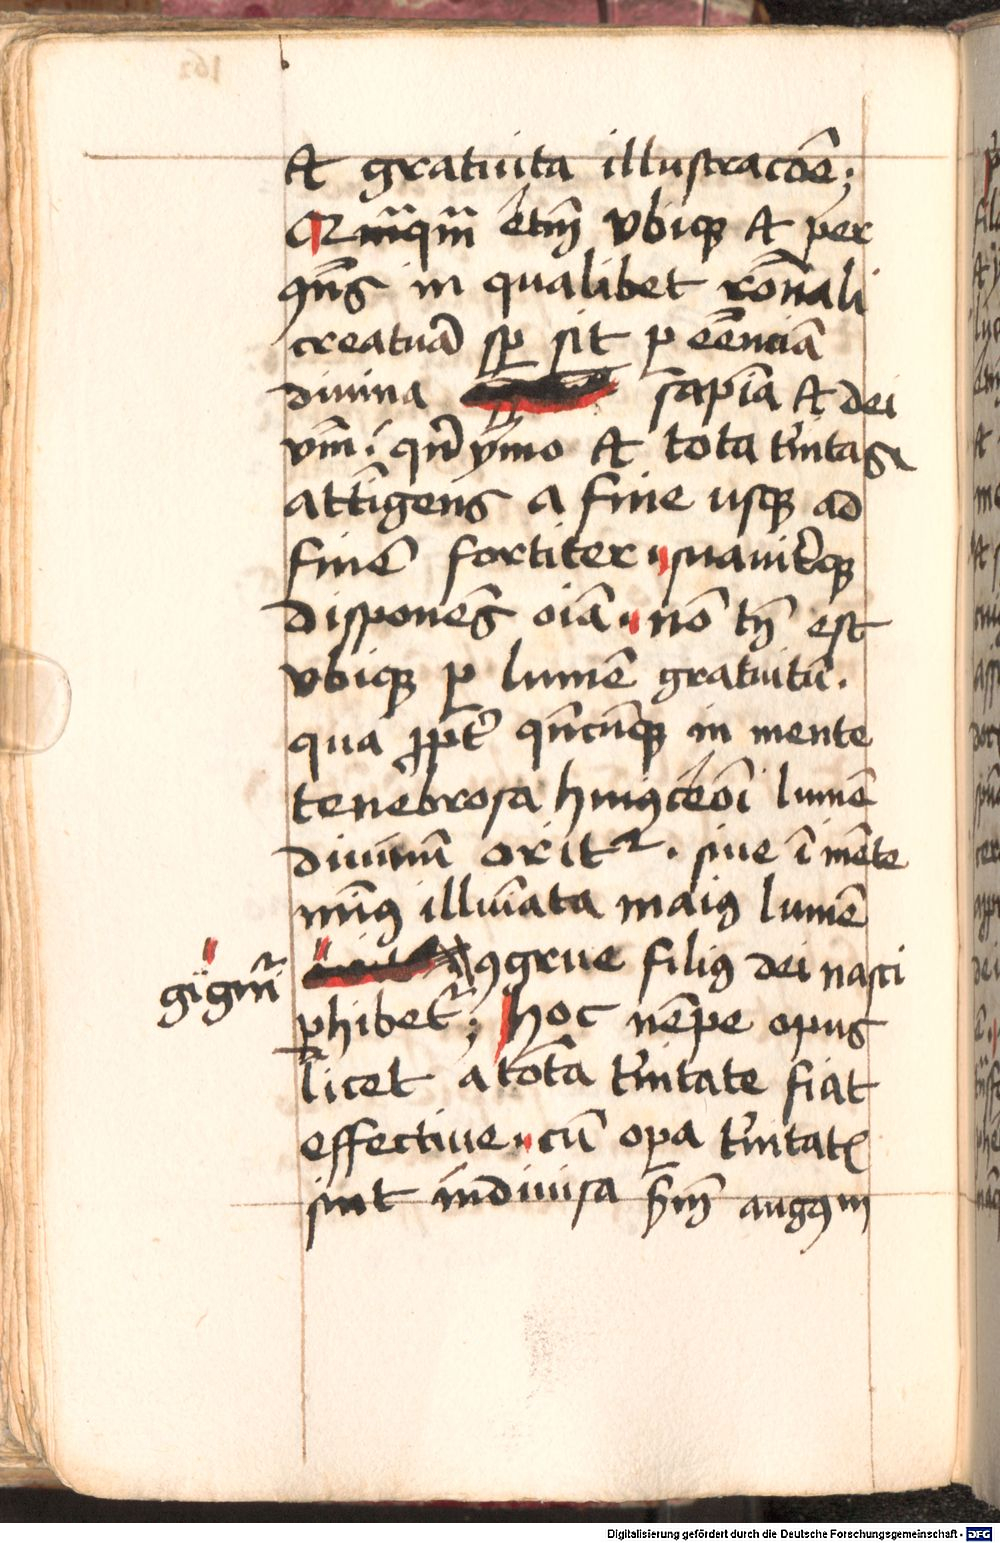 Et gratuita illustracōe;
Q̄mq̄m etm̄ vbiq3 Et per
in qualibet rōnali
creatura sp̄ sit p eēnciā
divina sapīa Et dei
vm̄. qn̄ ymo Et tota t'nitas
attīgens a fine usq3 ad
finē fortiter suavit'q3
disponēs oīa nō tn̄ est
vbiq3 p lumē gratuitū.
qua ppt' qn̄cūq3 in mente
tenebrosa lumē
divinū orit'. sive ī mēte
min9 illuīata maius lumē
9grue filius dei nasci
gigni
phibet'; hoc nēpe opus
licet a tota t'nitate fiat
effective cū opa t'nitatis
sint indivisa s'm augustin
162
Digitalisierung gefördert durch die Deutsche Forschungsgemeinschaft - DFG